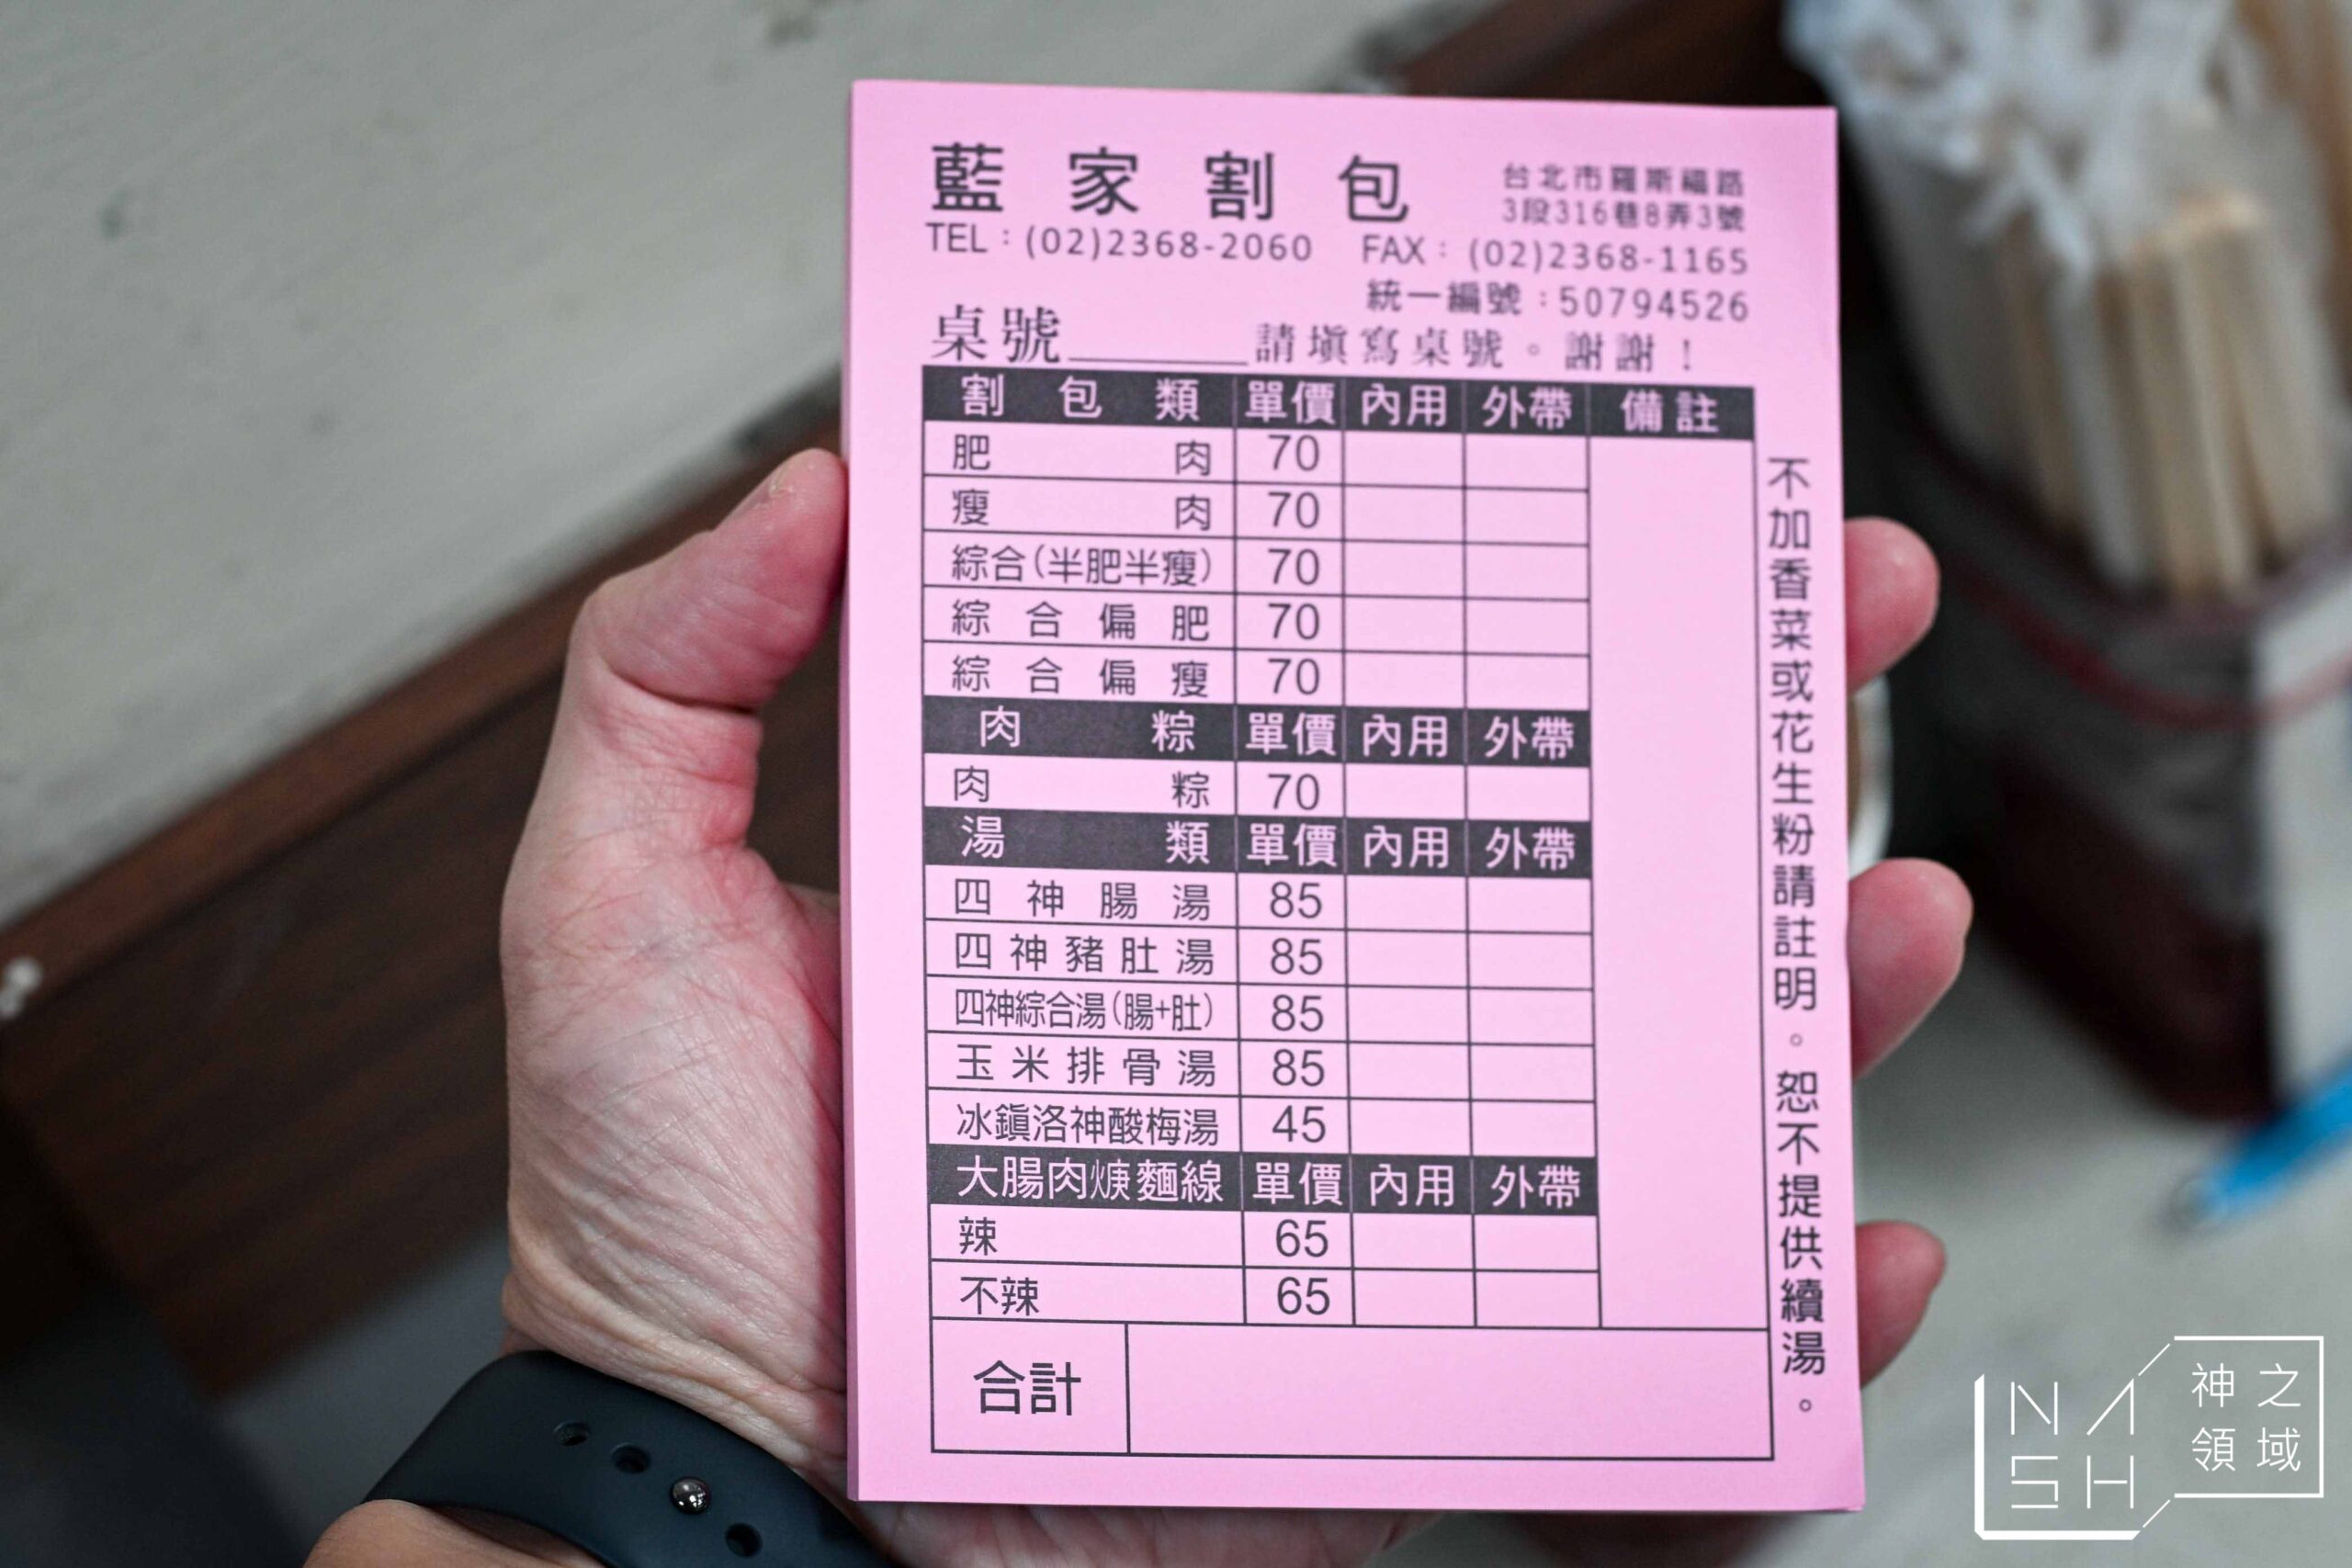 藍家割包
台北市羅斯福路
3段316巷8弄3號
TEL：(02)2368-2060 FAX：(02)2368-1165
統一編號：50794526
桌號______請填寫桌號。謝謝！
割包類 單價 內用 外帶 備註
肥肉 70
瘦肉 70
綜合(半肥半瘦) 70
綜合偏肥 70
綜合偏瘦 70
肉粽 單價 內用 外帶
肉粽 70
湯類 單價 內用 外帶
四神腸湯 85
四神豬肚湯 85
四神綜合湯(腸+肚) 85
玉米排骨湯 85
冰鎮洛神酸梅湯 45
大腸肉焿麵線 單價 內用 外帶
辣 65
不辣 65
合計
不加香菜或花生粉請註明。恕不提供續湯。
NASH
神之
領域